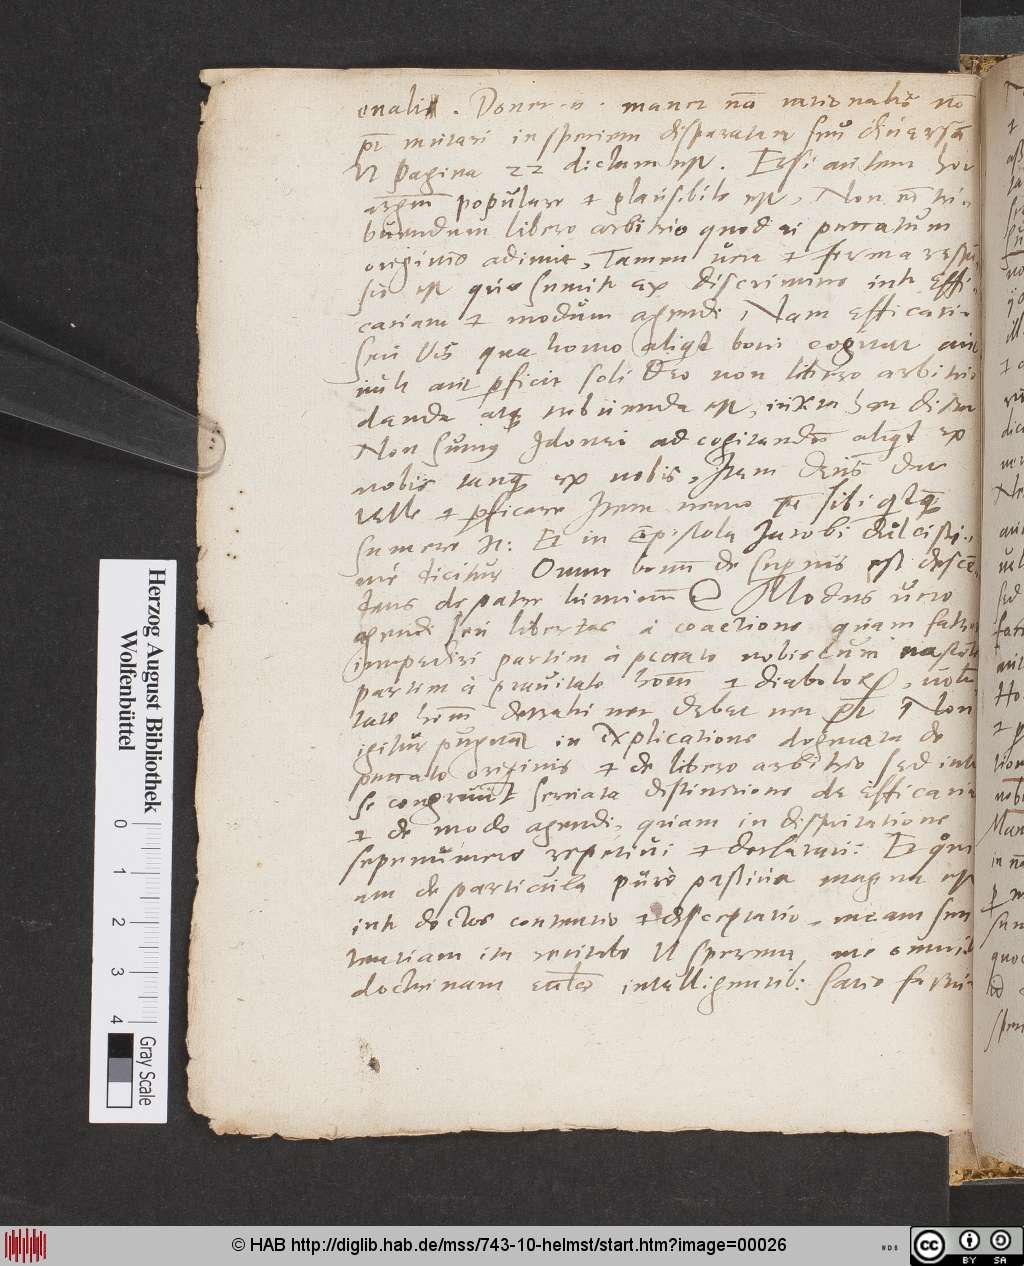 enalis. Donec n. manet nõ rationalis nõ
pt mutari in speciem disparatam seu diuersã
Vt pagina 22 dictum est. Etsi autem hoc
argm populare et plausibile est, Non em tri
buendum libero arbitrio quod ei peccatum
originis adimit, Tamen uera et firma respõ
sio est que sumit ex discrimine inter effi
caciam et modum agendi Nam efficacia
seu vis qua homo aliqd boni cogitat aut
uult aut perficit soli Deo non libero arbitrio
danda atq tribuenda est, iuxta hoc dictum
Non sumus Idonei ad cogitandũ aliqd ex
nobis tanq ex nobis, Item Deus dat
velle et perficere Item nemo pt sibi qcqã
sumere etc: Et in Epistola Jacobi dulcissi
me dicitur Omne bonum de supernis est descẽ
dens de patre luminum Modus uero
agendi seu libertas à coactione quam fatemur
impediri partim à peccato nobiscum nascente
partim à prauitate hom et diabolo, volũ
tate hom detrahi nec debet nec pt Non
igitur pugnat in explicatione dogmata de
peccato originis et de libero arbitrio sed inter
se congruũt seruata distinctione de efficacia
et de modo agendi, quam in disputatione
sepenumero repetiui et declaraui: Et qm
am de particula pure passiua magna est
inter doctos contentio et disceptatio, meam sen
tentiam ita recitabo Vt sperem, me omnib
doctrinam eccles intelligentib: satis facturum
Herzog August Bibliothek
Wolfenbüttel
0 1 2 3 4
Gray Scale
© HAB http://diglib.hab.de/mss/743-10-helmst/start.htm?image=00026
cc BY SA